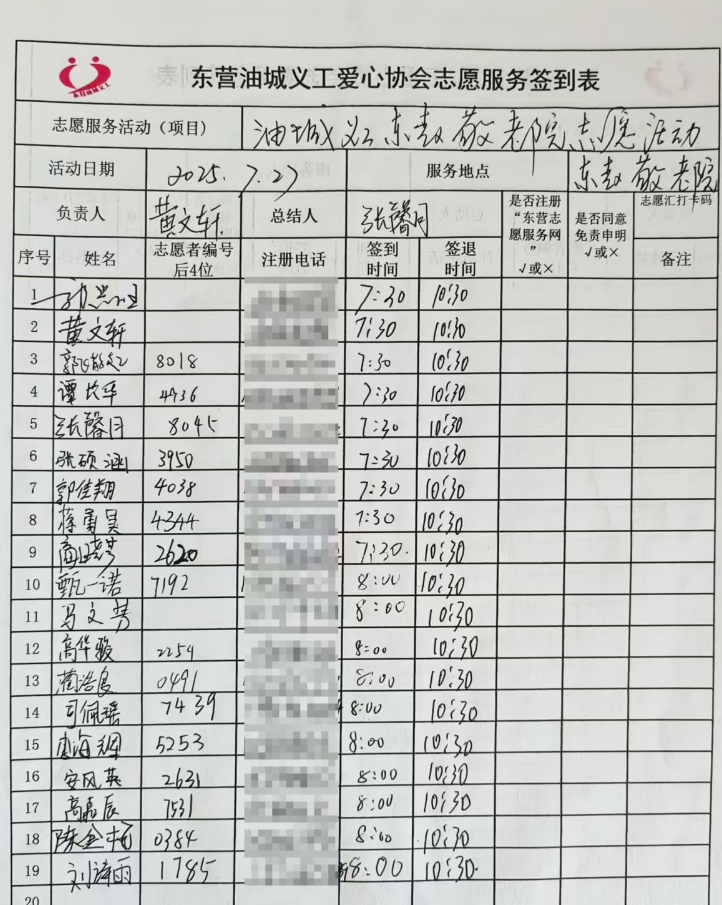 东营油城义工爱心协会志愿服务签到表
志愿服务活动（项目） 油城义工东赵敬老院志愿活动
活动日期 2025.7.27 服务地点 东赵敬老院
负责人 黄文轩 总结人 张馨月 是否注册“东营志愿服务网”√或× 是否同意免责申明√或× 志愿汇打卡码
序号 姓名 志愿者编号后4位 注册电话 签到时间 签退时间 备注
1 7:30 10:30
2 黄文轩 7:30 10:30
3 8018 7:30 10:30
4 谭长华 4936 7:30 10:30
5 张馨月 8045 7:30 10:30
6 张硕涵 3950 7:30 10:30
7 郭佳翔 4038 7:30 10:30
8 蒋勇昊 4344 7:30 10:30
9 2620 7:30 10:30
10 甄一诺 7192 8:00 10:30
11 马文芳 8:00 10:30
12 高华骏 2254 8:00 10:30
13 0491 8:00 10:30
14 司佩瑶 7439 8:00 10:30
15 5253 8:00 10:30
16 安风英 2631 8:00 10:30
17 高嘉辰 7531 8:00 10:30
18 0384 8:00 10:30
19 刘诗雨 1785 8:00 10:30
20